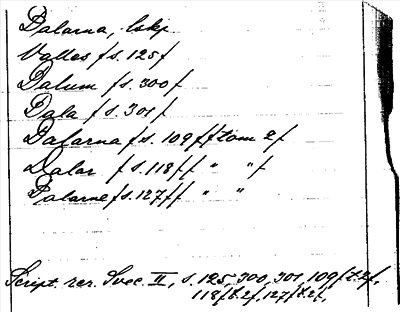 Dalarna, lskp
Valles /s. 125/
Dalum /s. 300/
Dala /s. 301/
Dalarna /s. 109 f/ tom 2/
Dalar /s. 118 f/ " "/
Dalarne /s. 127 f/ " "
Script. rer. Svec. II, s. 125, 300, 301, 109 f t.2f,
118 f t.2f, 127 f t.2f,